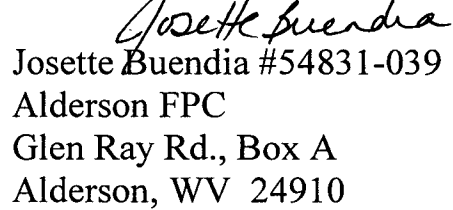 Josette Buendia
Josette Buendia #54831-039
Alderson FPC
Glen Ray Rd., Box A
Alderson, WV  24910